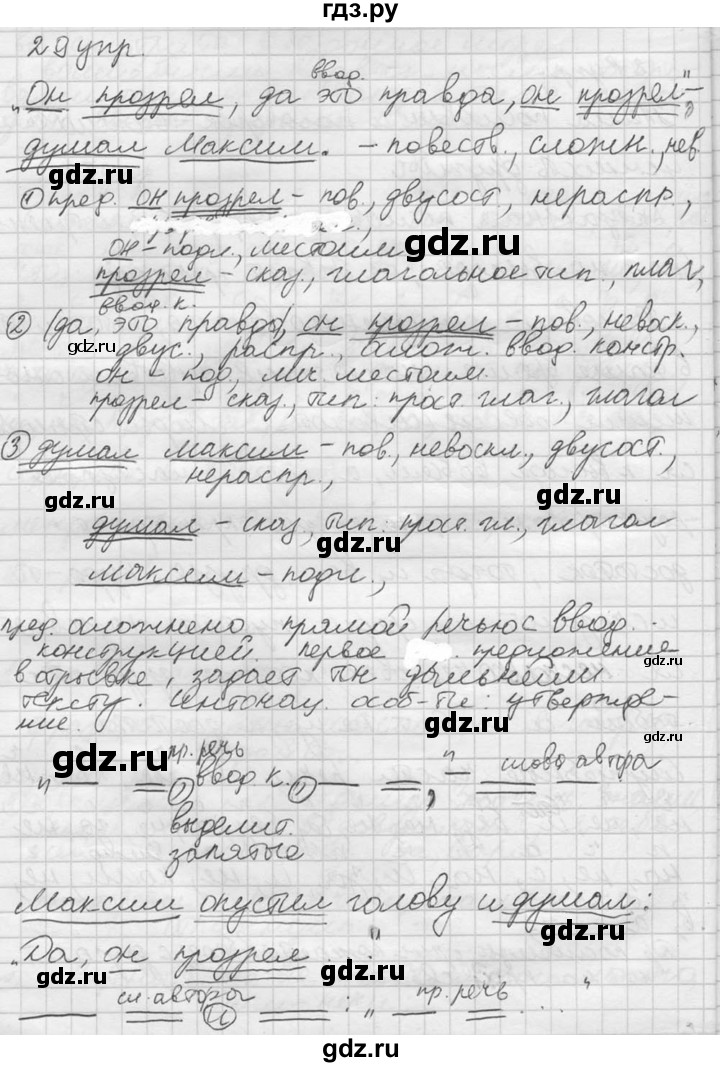 гдз.ру
29 упр.
ввод.
"Он прозрел, да это правда, он прозрел", -
думал Максим. - повеств., сложн., нев.
gdz.ru
① пред. он прозрел - пов., двусост, нераспр.,
gdz.ru
он - подл., местоим
прозрел - сказ., глагольное тип., глаг,
gdz.ru
ввод. к.
② (да, это правда), он прозрел - пов., невоск.,
gdz.ru
двус., распр., ослож. ввод. констр.
он - под, лич. местоим.
gdz.ru
прозрел - сказ., тип: прост глаг., глагол
③ думал Максим - пов., невоскл., двусост.,
нераспр.,
gdz.ru
gdz.ru
думал - сказ, тип: прост. гл., глагол
gdz.ru
Максим - подл.,
пред. осложнено прямой речью с ввод.
конструкцией. первое предложение
в отрывке, задает тон дальнейш
gdz.ru
тексту. Интонац. особ-ти: утвержде-
ние.
gdz.ru
gdz.ru
пр. речь
gdz.ru
" ① ввод. к. ① , " - слова автора
выделит.
запятые
gdz.ru
Максим опустил голову и думал:
gdz.ru
"Да, он прозрел . . ."
gdz.ru
gdz.ru
сл. авторы пр. речь
и : " . . . "
gdz.ru
гдз.ру